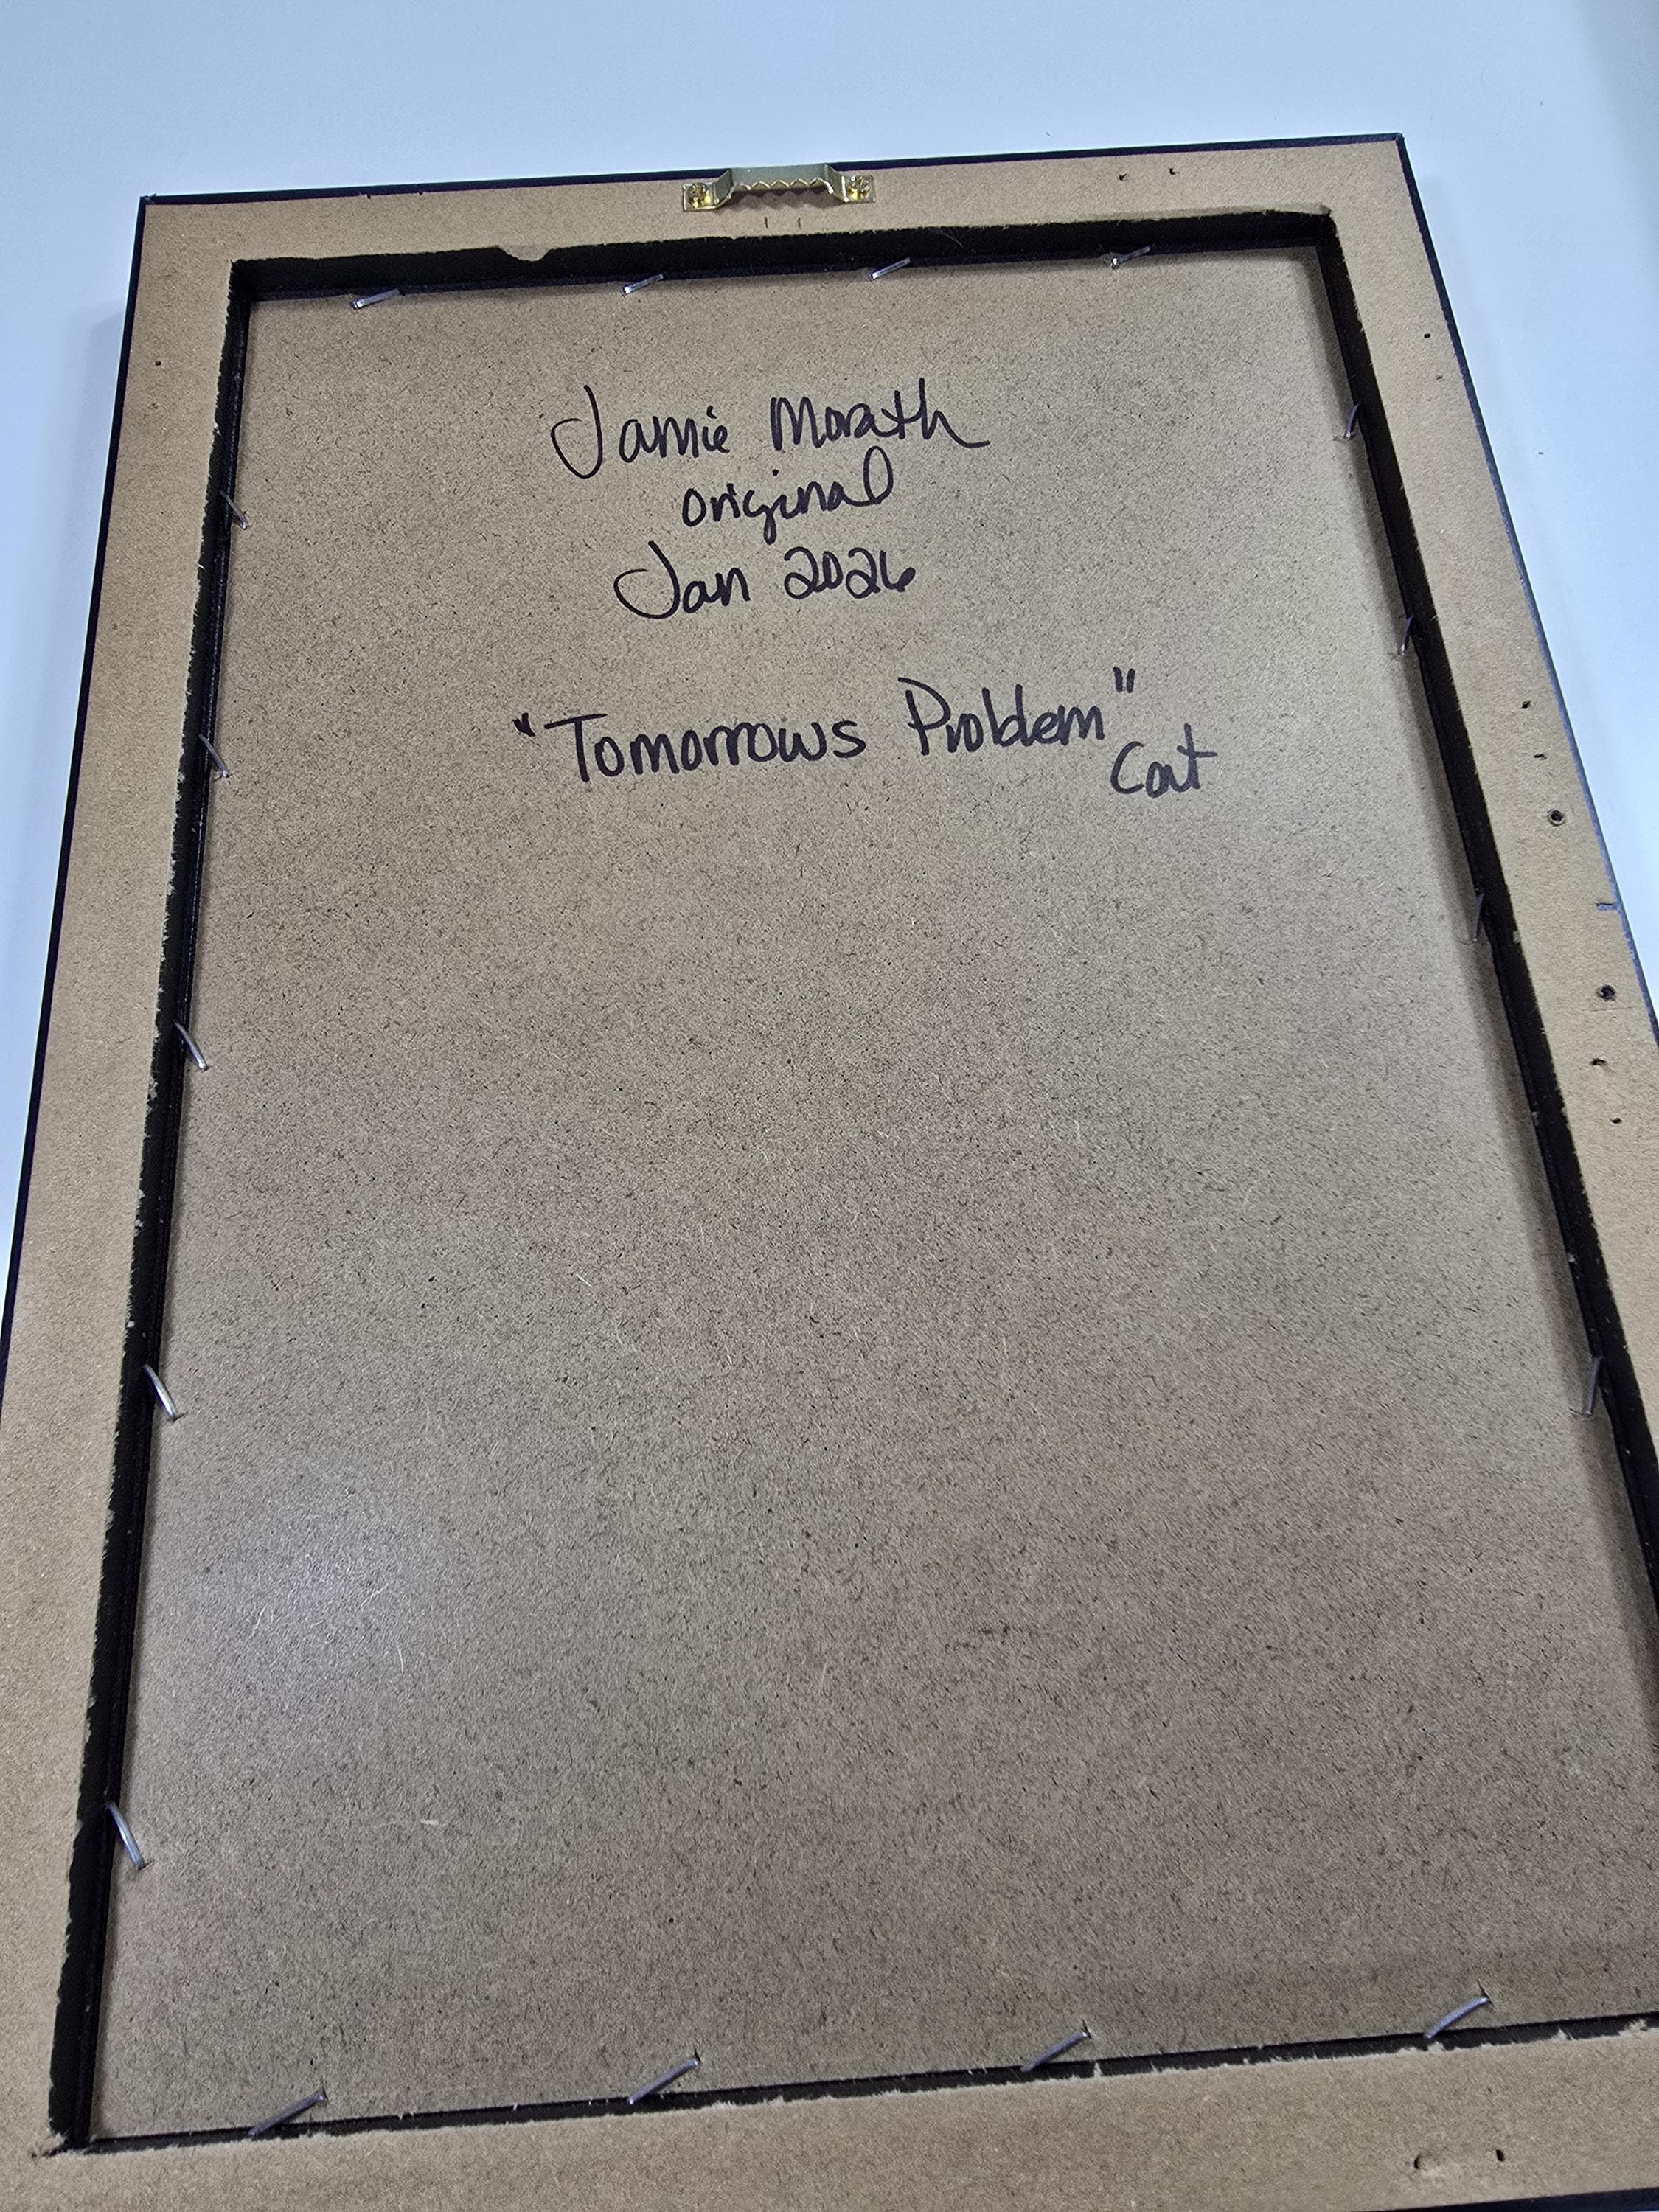 Jamie Morath
original
Jan 2026
"Tomorrows Problem"
Cat